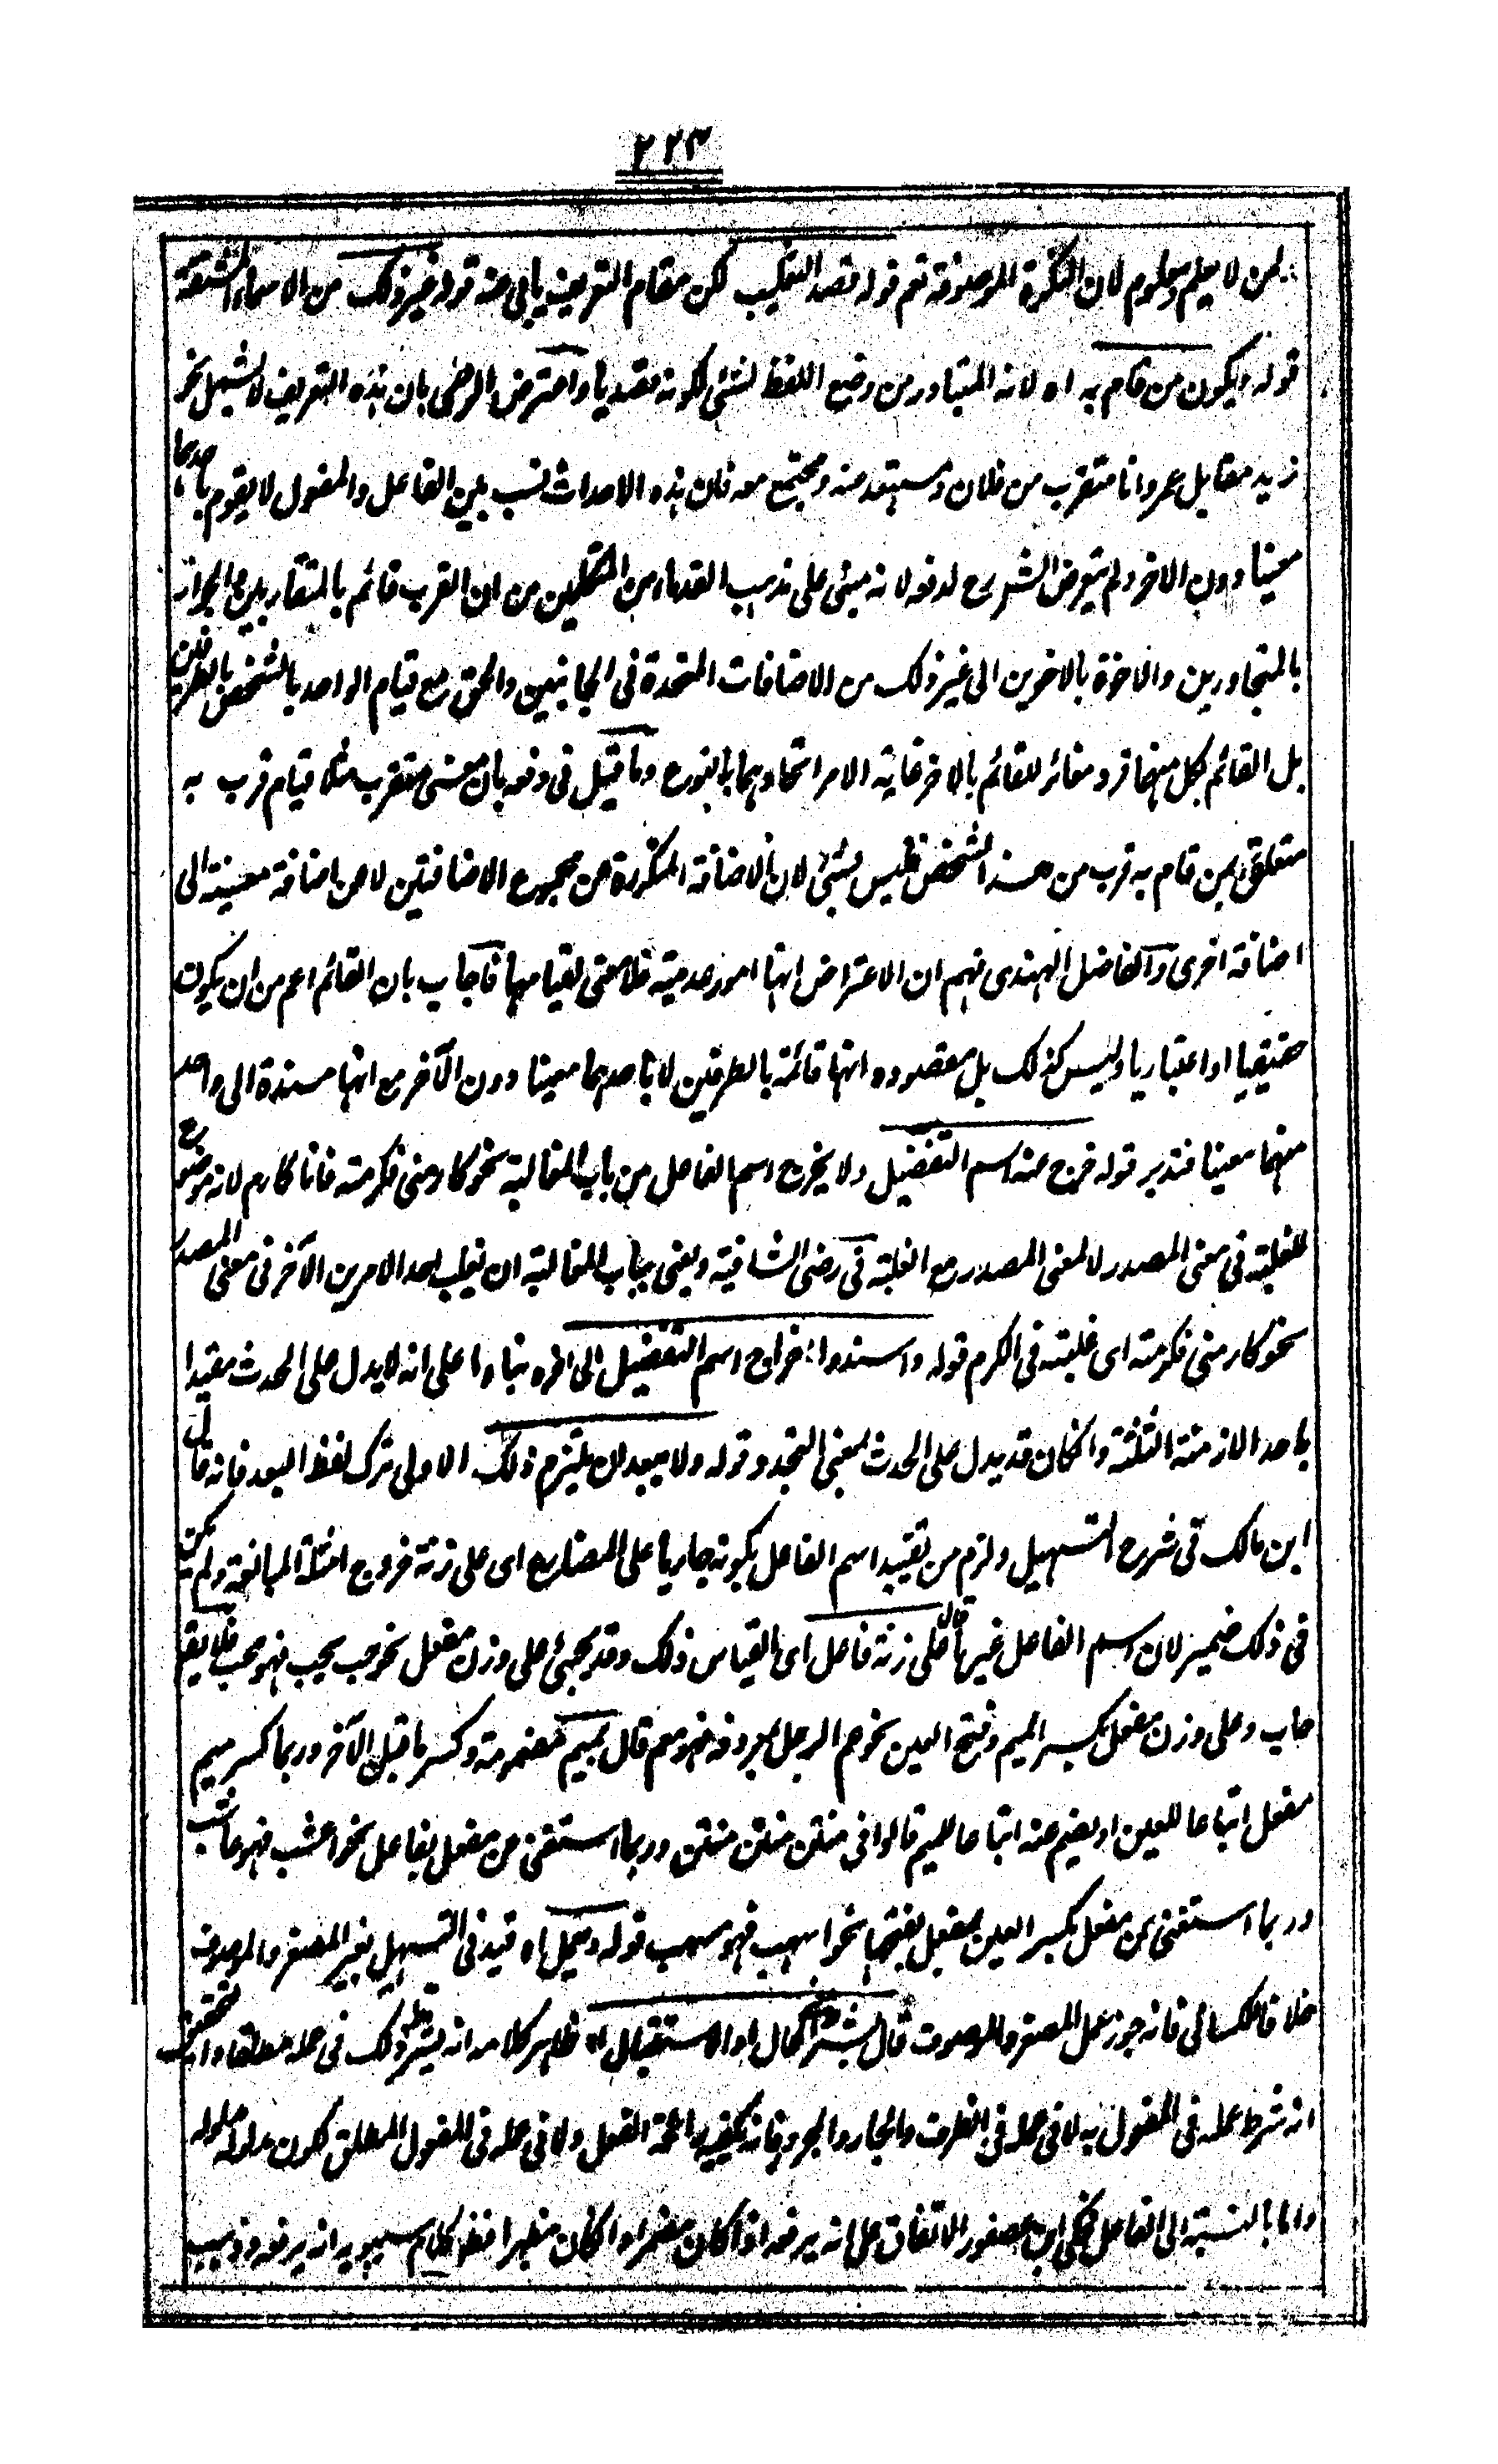 ٢٢٣
لمن لا يعلم ومعلوم لان النكرة الموصوفة تعم قوله قصد التغليب لكن مقام التعريف يأبى عنه قوله غير ذلك من الاسماء المشتقة
قوله ويكون من قام به اه لانه المتبادر من وضع اللفظ لشئ لكونه مقصديا واعترض الرضى بان هذه التعريف لا يشمل نحو
زيد مقابل عمرو وانا متقرب من فلان ومستبعد منه ومجتمع معه فان هذه الاحداث نسب بين الفاعل والمفعول لا يقوم باحدهما
معينا دون الاخر ولم يتعرض الشرح لدفعه لانه مبنى على مذهب القدماء من المتكلمين من ان القرب قائم بالمتقاربين والجوار
بالمتجاورين والاخوة بالاخوين الى غير ذلك من الاضافات المتحدة فى الجانبين والحق مع قيام الواحد بالشخص بالطرفين
بل القائم بكل منهما فرد مغائر للقائم بالاخر غاية الامر اتحادهما بالنوع وما قيل فى دفعه بان معنى متقرب مثلا قيام قرب به
متعلق بمن قام به قرب من هذا الشخص فليس بشئ لان الاضافة المتكررة عن مجموع الاضافتين لا عن اضافة معينة الى
اضافة اخرى والفاضل الهندى فهم ان الاعتراض انها امور عدمية فلا معنى لقيامها فاجاب بان القائم اعم من ان يكون
حقيقيا او اعتباريا وليس كذلك بل مقصوده انها قائمة بالطرفين لا باحدهما معينا دون الآخر مع انها مسندة الى واحد
منهما معينا فتدبر قوله خرج عنه اسم التفضيل ولا يخرج اسم الفاعل من باب المغالبة نحو كارمنى فكرمته فانا كارم لانه موضوع
للغلبة فى معنى المصدر لا لمعنى المصدر مع الغلبة فى رضى الشافية ويعنى بباب المغالبة ان يغلب احد الامرين الآخر فى معنى المصدر
نحو كارمنى فكرمته اى غلبته فى الكرم قوله واسندوا اخراج اسم التفضيل الى اخره بناءا على انه لا يدل على الحدث مقيدا
باحد الازمنة الثلثة وان كان قد يدل على الحدث بمعنى التجدد قوله ولا يبعد ان يلتزم ذلك الاولى ترك لفظ البعد فانه قال
ابن مالك فى شرح التسهيل ولزم من تقييد اسم الفاعل بكونه جاريا على المضارع اى على زنته خروج امثلة المبالغة ولم يكن
فى ذلك ضمير لان اسم الفاعل غيرها قال على زنة فاعل اى القياس ذلك وقد يجئ على وزن مفعل نحو حب يحب فهو محب فلا يقم
حاب وعلى وزن مفعل بكسر الميم وفتح العين نحو عم الرجل بمعروفه فهو معم قال بميم مضمومة وكسر ما قبل الآخر وربما كسر ميم
مفعل اتباعا للعين او يضم عنه اتباعا للميم قالوا فى منتن منتن منتن وربما استغنى عن مفعل بفاعل نحو اعشب فهو عاشب
وربما استغنى عن مفعل بكسر العين بمفعل بفتحها نحو اسهب فهو مسهب قوله ويعمل اه قيد فى التسهيل بغير المصغر والموصوف
خلافا للكسائى فانه جوز عمل المصغر والموصوف قال بشرط معنى الحال او الاستقبال اه ظاهر كلامه انه يشترط ذلك فى عمله مطلقا والتحقيق
انه شرط عمله فى المفعول به لا فى عمله فى الظرف والجار والمجرور فانه يكفيه رائحة الفعل ولا فى عمله فى المفعول المطلق لكون مدلوله مدلوله
واما بالنسبة الى الفاعل فحكى ابن عصفور الاتفاق على انه يرفعه اذا كان مضمرا وان كان مظهرا فظاهر كلام سيبويه انه يرفعه وذهب